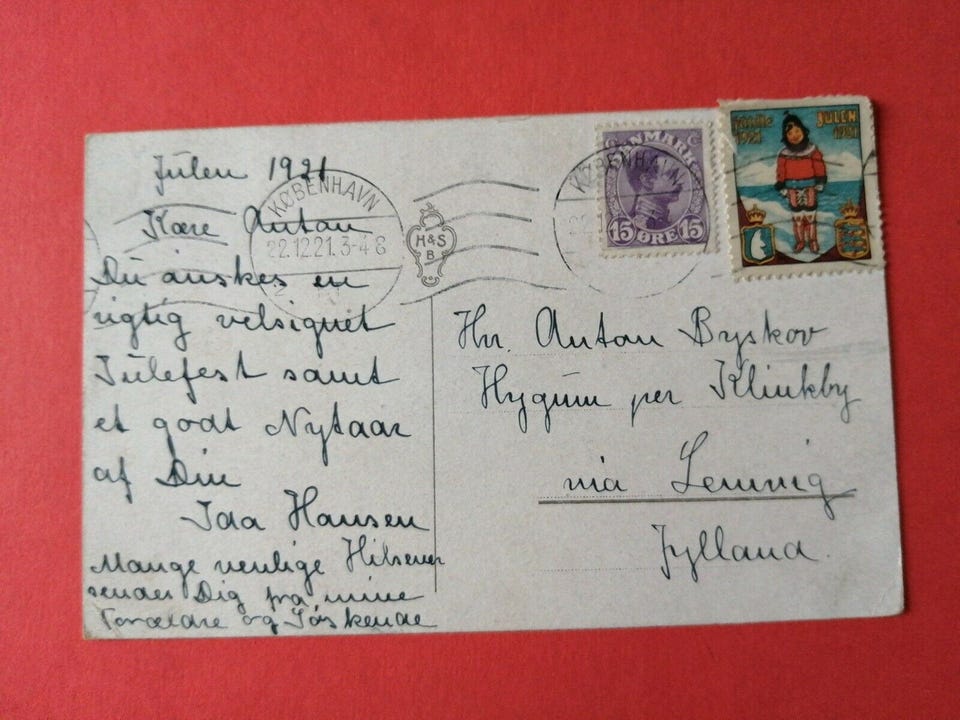 Julen 1921
Kære Antan
Du ønskes en
rigtig velsignet
Julefest samt
et godt Nytaar
af Din
Ida Hansen
Mange venlige Hilsener
sender Dig fra mine
Forældre og Søskende
KØBENHAVN
22.12.21. 3-4 E
H&S
B
KØBENHAVN
DANMARK
15 ØRE 15
JULEN
1921
1921
Hr. Anton Byskov
Hygum per Klinkby
via Lemvig
Jylland.